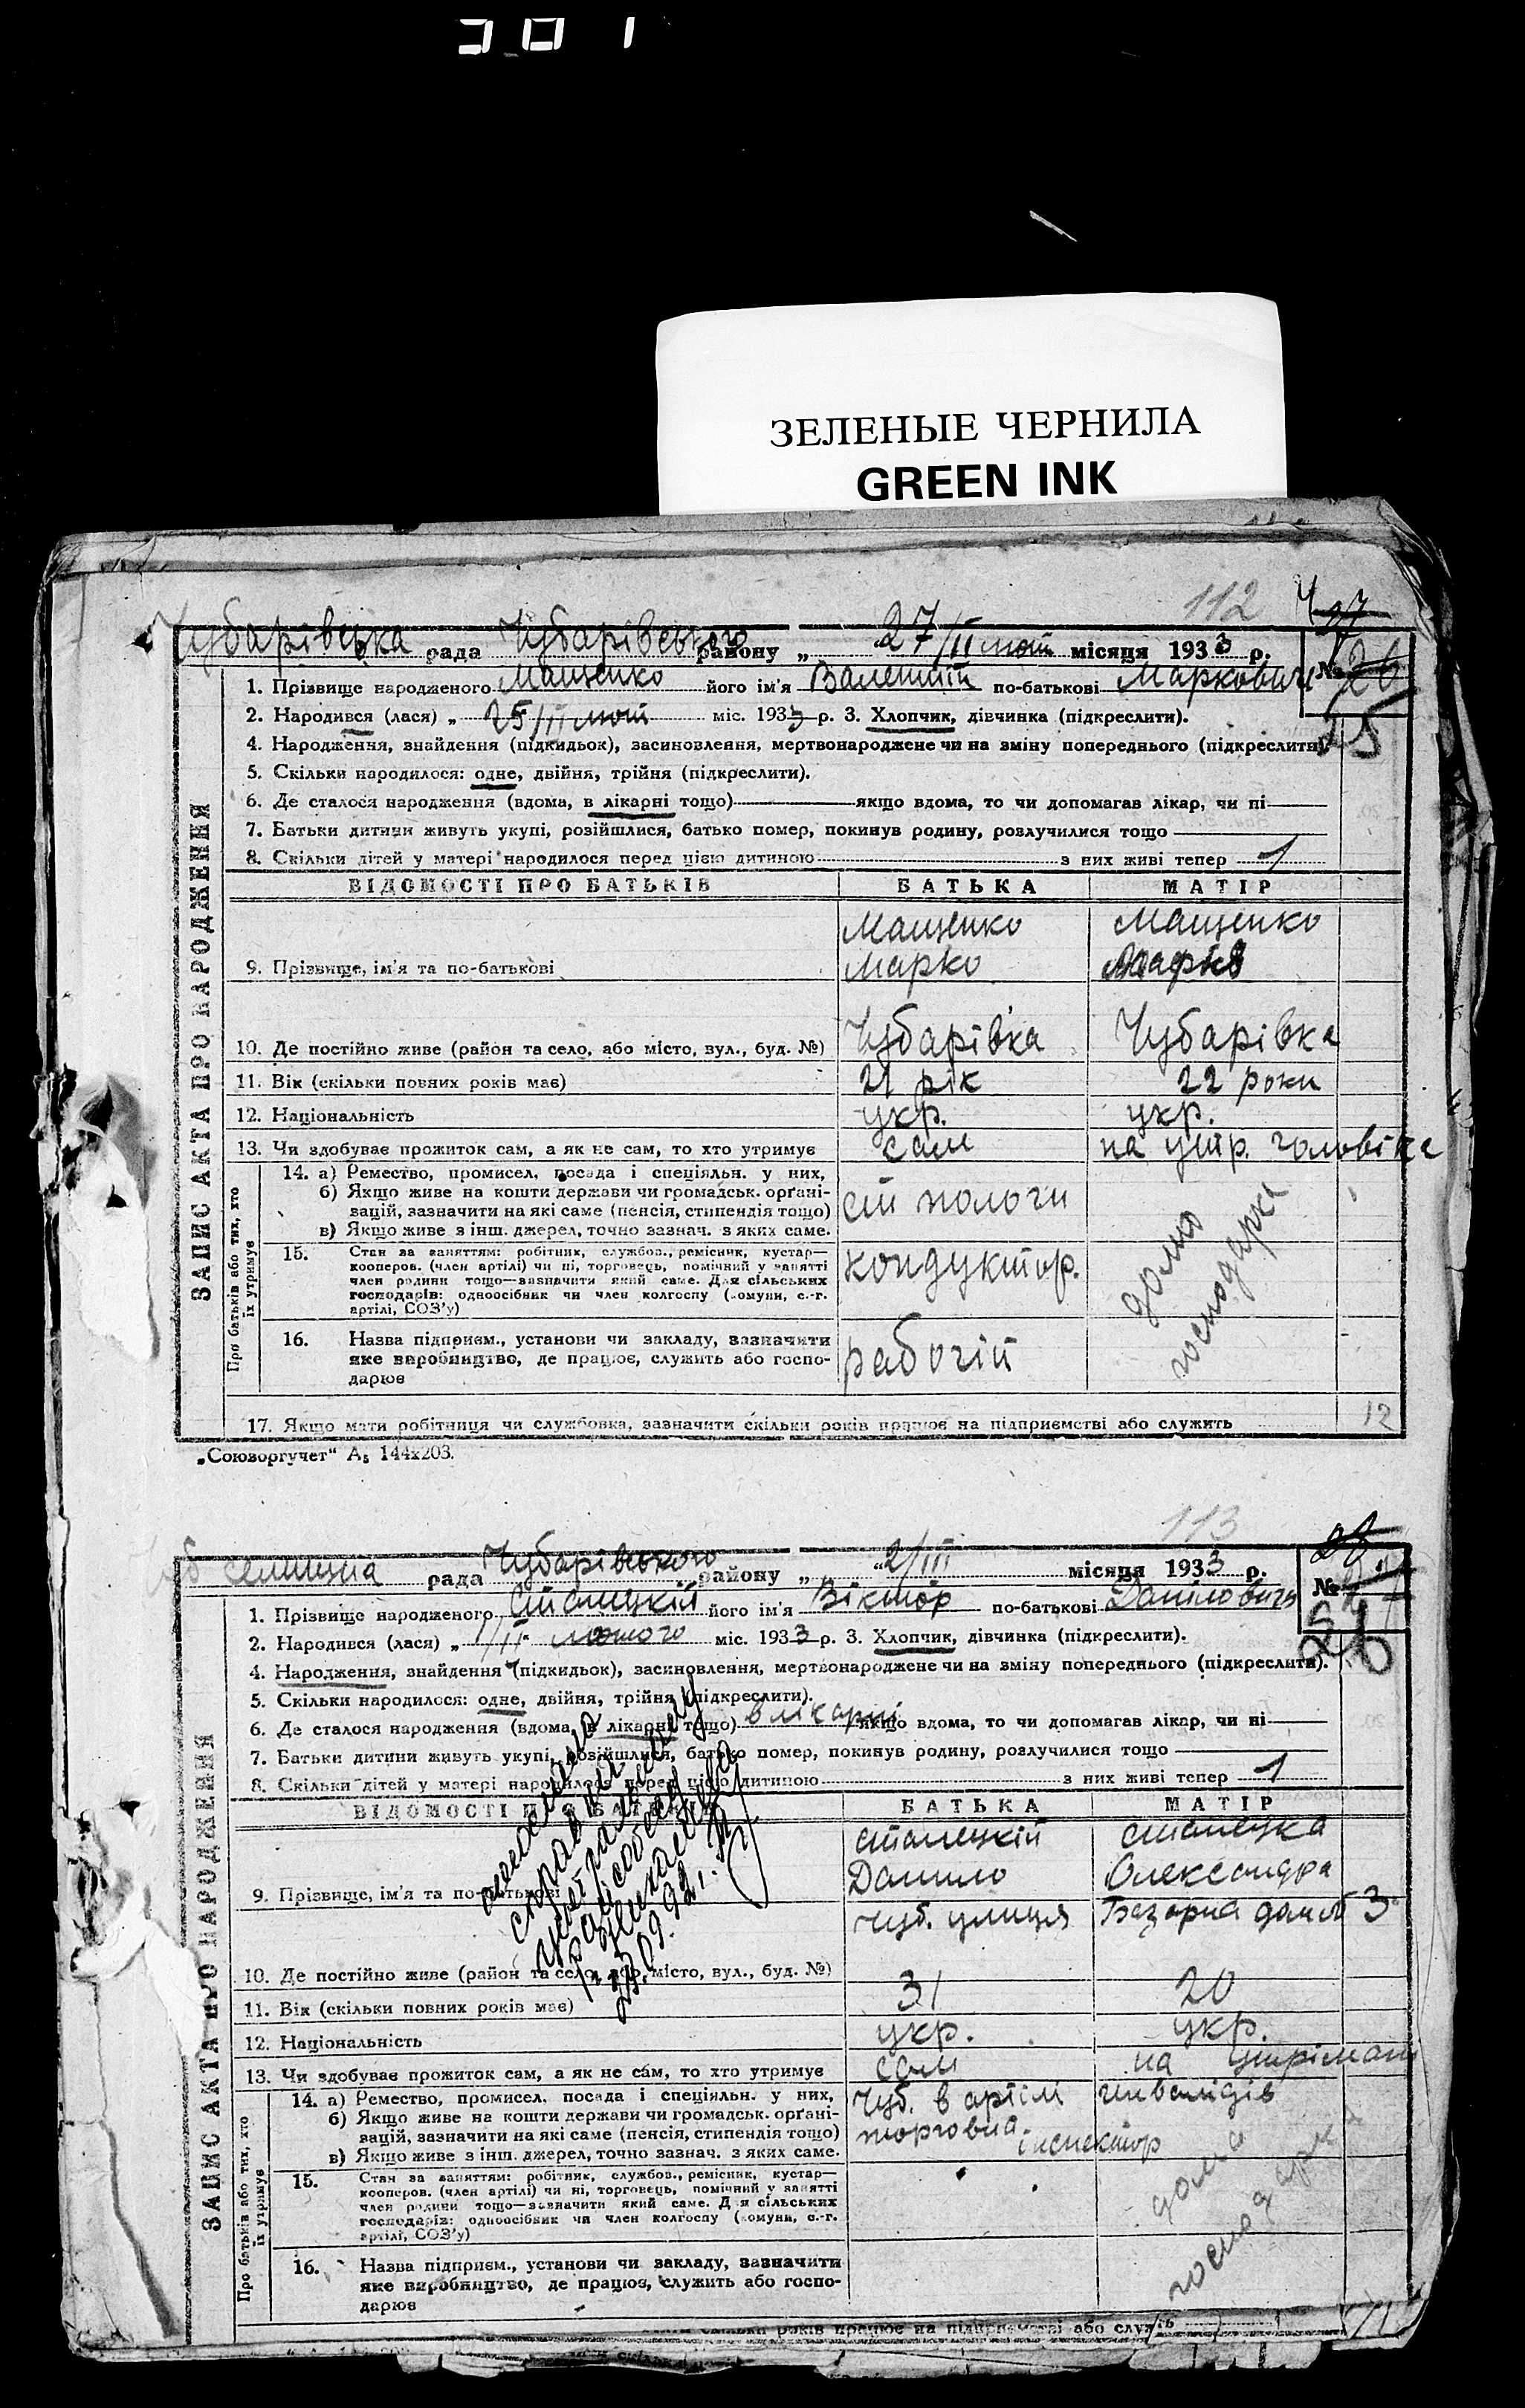 ЗЕЛЕНЫЕ ЧЕРНИЛА
GREEN INK
112
Чубарівська рада Чубарівського району „ 27/II лют місяця 1933 р.
№ 26
25
1. Прізвище народженого Мащенко його ім'я Валентій по-батькові Маркович
2. Народився (лася) „ 25/II лют міс. 1933 р. 3. Хлопчик, дівчинка (підкреслити).
4. Народження, знайдення (підкидьок), засиновлення, мертвонароджене чи на зміну попереднього (підкреслити).
5. Скільки народилося: одне, двійня, трійня (підкреслити).
6. Де сталося народження (вдома, в лікарні тощо) якщо вдома, то чи допомагав лікар, чи ні
7. Батьки дитини живуть укупі, розійшлися, батько помер, покинув родину, розлучилися тощо
8. Скільки дітей у матері народилося перед цією дитиною з них живі тепер 1
ЗАПИС АКТА ПРО НАРОДЖЕННЯ
ВІДОМОСТІ ПРО БАТЬКІВ БАТЬКА МАТІР
Мащенко Мащенко
9. Прізвище, ім'я та по-батькові Марко
10. Де постійно живе (район та село, або місто, вул., буд. №) Чубарівка Чубарівка
11. Вік (скільки повних років має) 21 рік 22 роки
12. Національність укр. укр.
13. Чи здобуває прожиток сам, а як не сам, то хто утримує сам на утр. чоловіка
Про батьків або тих, хто їх утримує
14. а) Ремество, промисел, посада і спеціяльн. у них,
б) Якщо живе на кошти держави чи громадськ. орґані-
зацій, зазначити на які саме (пенсія, стипендія тощо)
в) Якщо живе з інш. джерел, точно зазнач. з яких саме.
15. Стан за заняттям: робітник, службов., ремісник, кустар—
кооперов. (член артілі) чи ні, торговець, помічний у занятті
член родини тощо—зазначити який саме. Для сільських
господарів: одноосібник чи член колгоспу (комуни, с.-г.
артілі, СОЗ'у)
кондуктор.
домо
господарка
16. Назва підприєм., установи чи закладу, зазначити
яке виробництво, де працює, служить або госпо-
дарює
рабочій
17. Якщо мати робітниця чи службовка, зазначити скільки років працює на підприємстві або служить
12
„Союзоргучет“ А5 144х203.
113
рада Чубарівського району „ 2/III місяця 1933 р.
№
26
1. Прізвище народженого Сталицкій його ім'я Віктор по-батькові Данілович
2. Народився (лася) „ 1/II лютого міс. 1933 р. 3. Хлопчик, дівчинка (підкреслити).
4. Народження, знайдення (підкидьок), засиновлення, мертвонароджене чи на зміну попереднього (підкреслити).
5. Скільки народилося: одне, двійня, трійня (підкреслити).
6. Де сталося народження (вдома, в лікарні тощо) в лікарні якщо вдома, то чи допомагав лікар, чи ні
7. Батьки дитини живуть укупі, розійшлися, батько помер, покинув родину, розлучилися тощо
8. Скільки дітей у матері народилося перед цією дитиною з них живі тепер 1
ЗАПИС АКТА ПРО НАРОДЖЕННЯ
ВІДОМОСТІ ПРО БАТЬКІВ БАТЬКА МАТІР
Сталецкій Сталецка
9. Прізвище, ім'я та по-батькові Данило Олександра
Чуб. улиця Базарна дом № 3
10. Де постійно живе (район та село, або місто, вул., буд. №)
11. Вік (скільки повних років має) 31 20
12. Національність укр. укр.
13. Чи здобуває прожиток сам, а як не сам, то хто утримує сам на
Про батьків або тих, хто їх утримує
14. а) Ремество, промисел, посада і спеціяльн. у них, Чуб. в артілі инвалідів
б) Якщо живе на кошти держави чи громадськ. орґані-
зацій, зазначити на які саме (пенсія, стипендія тощо) торговиа. інспектор
в) Якщо живе з інш. джерел, точно зазнач. з яких саме.
15. Стан за заняттям: робітник, службов., ремісник, кустар—
кооперов. (член артілі) чи ні, торговець, помічний у занятті
член родини тощо—зазначити який саме. Для сільських
господарів: одноосібник чи член колгоспу (комуни, с.-г.
артілі, СОЗ'у)
16. Назва підприєм., установи чи закладу, зазначити
яке виробництво, де працює, служить або госпо-
дарює
скільки років працює на підприємстві або служить